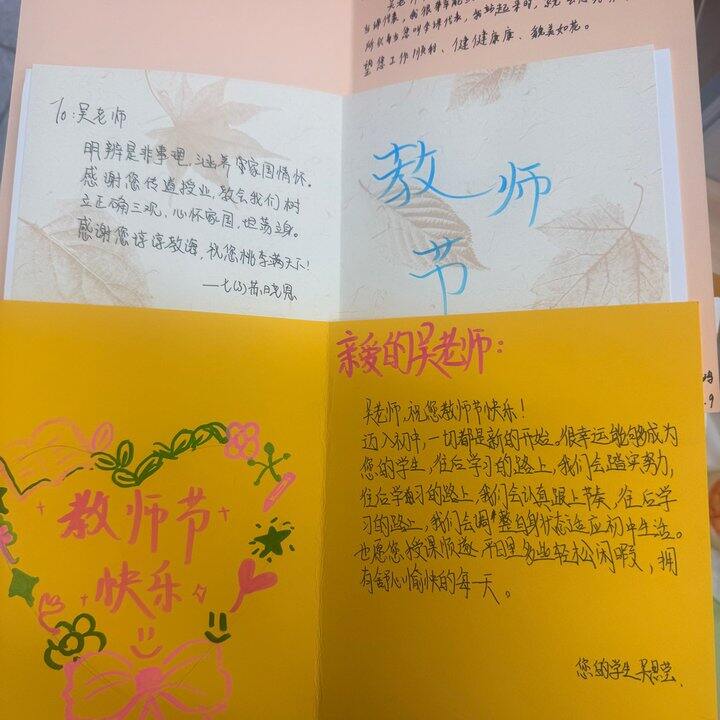 当课代表，我很荣幸能
望您工作顺利、健健康康、貌美如花。
To:吴老师
明辨是非事理，涵养家国情怀。
感谢您传道授业，教会我们树
立正确三观，心怀家国，坦荡立身。
感谢您谆谆教诲，祝您桃李满天下!
——七(3)
教师
节
.9
教师节
快乐
亲爱的吴老师：
吴老师，祝您教师节快乐！
迈入初中，一切都是新的开始。很幸运能够成为
您的学生，往后学习的路上，我们会踏实努力，
往后学习的路上，我们会认真跟上节奏，往后学
习的路上，我们会调整自身状态适应初中生活。
也愿您授课顺遂，平日里多些轻松闲暇，拥
有舒心愉快的每一天。
您的学生吴恩莹.